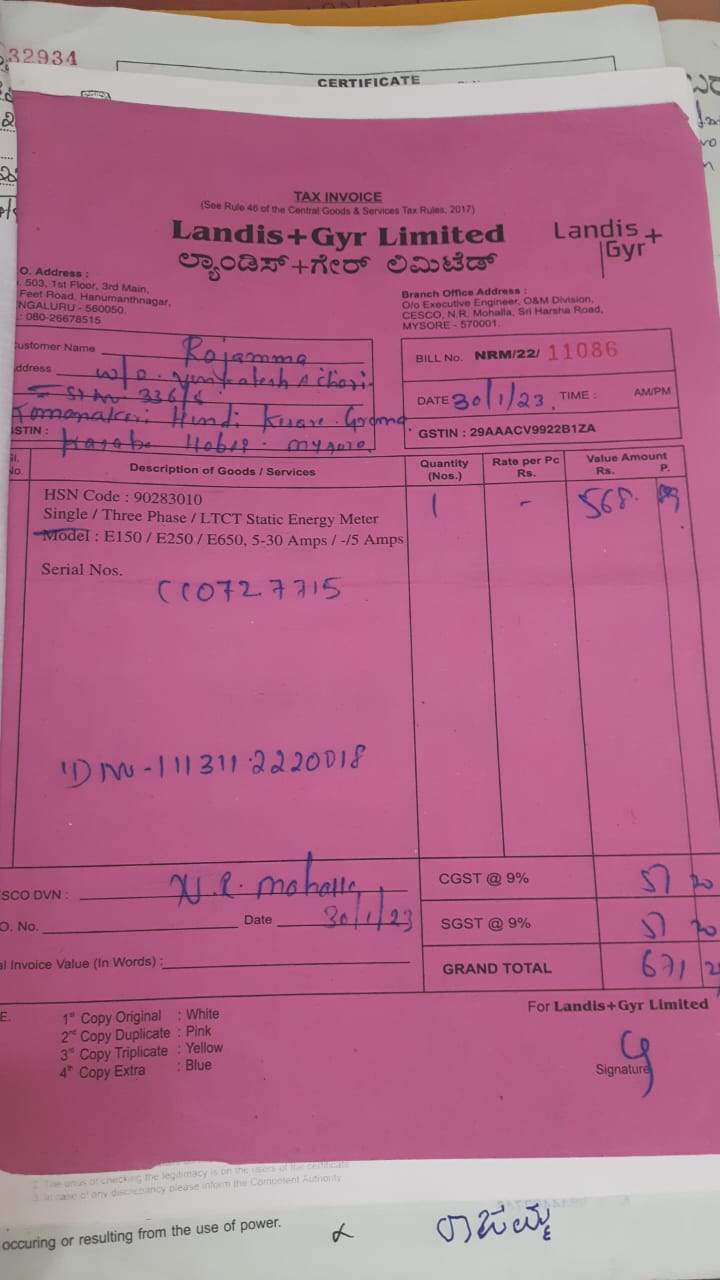 32934
CERTIFICATE
TAX INVOICE
(See Rule 46 of the Central Goods & Services Tax Rules, 2017)
Landis+Gyr Limited
ಲ್ಯಾಂಡಿಸ್+ಗೇರ್ ಲಿಮಿಟೆಡ್
Landis+
Gyr
O. Address :
503, 1st Floor, 3rd Main,
Feet Road, Hanumanthnagar,
NGALURU - 560050.
: 080-26678515
Branch Office Address :
O/o Executive Engineer, O&M Division,
CESCO, N.R. Mohalla, Sri Harsha Road,
MYSORE - 570001.
ustomer Name Rajamma
ddress w/o
336/
Hundi Grama
STIN : Kasaba Hobli mysore
BILL No. NRM/22/ 11086
DATE 30/1/23 TIME : AM/PM
GSTIN : 29AAACV9922B1ZA
Sl. No. Description of Goods / Services Quantity (Nos.) Rate per Pc Rs. Value Amount Rs. P.
HSN Code : 90283010 1 - 568.
Single / Three Phase / LTCT Static Energy Meter
Model : E150 / E250 / E650, 5-30 Amps / -/5 Amps
Serial Nos.
CC0727715
111311 2220018
SCO DVN : N.R. mohalla
O. No. Date 30/1/23
l Invoice Value (In Words) :
CGST @ 9% 51 20
SGST @ 9% 51 20
GRAND TOTAL 671
E. 1st Copy Original : White
2nd Copy Duplicate : Pink
3rd Copy Triplicate : Yellow
4th Copy Extra : Blue
For Landis+Gyr Limited
Signature
2. The onus of checking the legitimacy is on the users of the certificate
3. In case of any discrepancy please inform the Competent Authority
occuring or resulting from the use of power.
ರಾಜಮ್ಮ